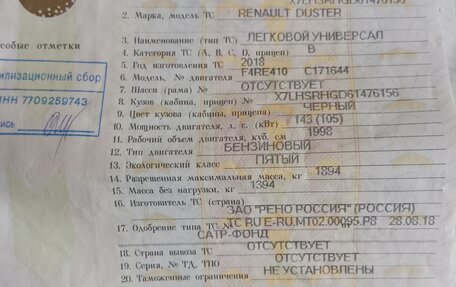 X7LHSRHGD61476156
2. Марка, модель ТС RENAULT DUSTER
3. Наименование (тип ТС) ЛЕГКОВОЙ УНИВЕРСАЛ
особые отметки
4. Категория ТС (А, В, С, D, прицеп) B
5. Год изготовления ТС 2018
6. Модель, № двигателя F4RE410 C171644
илизационный сбор
7. Шасси (рама) № ОТСУТСТВУЕТ
ИНН 7709259743
8. Кузов (кабина, прицеп) № X7LHSRHGD61476156
9. Цвет кузова (кабины, прицепа) ЧЕРНЫЙ
10. Мощность двигателя, л. с. (кВт) 143 (105)
пись
11. Рабочий объем двигателя, куб. см 1998
12. Тип двигателя БЕНЗИНОВЫЙ
13. Экологический класс ПЯТЫЙ
14. Разрешенная максимальная масса, кг 1894
15. Масса без нагрузки, кг 1394
16. Изготовитель ТС (страна)
ЗАО "РЕНО РОССИЯ" (РОССИЯ)
17. Одобрение типа ТС № ТС RU E-RU.MT02.00095.P8 от 28.08.18
САТР-ФОНД
18. Страна вывоза ТС ОТСУТСТВУЕТ
19. Серия, № ТД, ТПО ОТСУТСТВУЕТ
20. Таможенные ограничения НЕ УСТАНОВЛЕНЫ